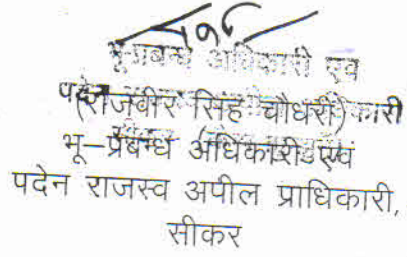 भू-प्रबन्ध अधिकारी एवं
पदेन
(राजवीर सिंह चौधरी)
भू-प्रबन्ध अधिकारी एवं
पदेन राजस्व अपील प्राधिकारी,
सीकर